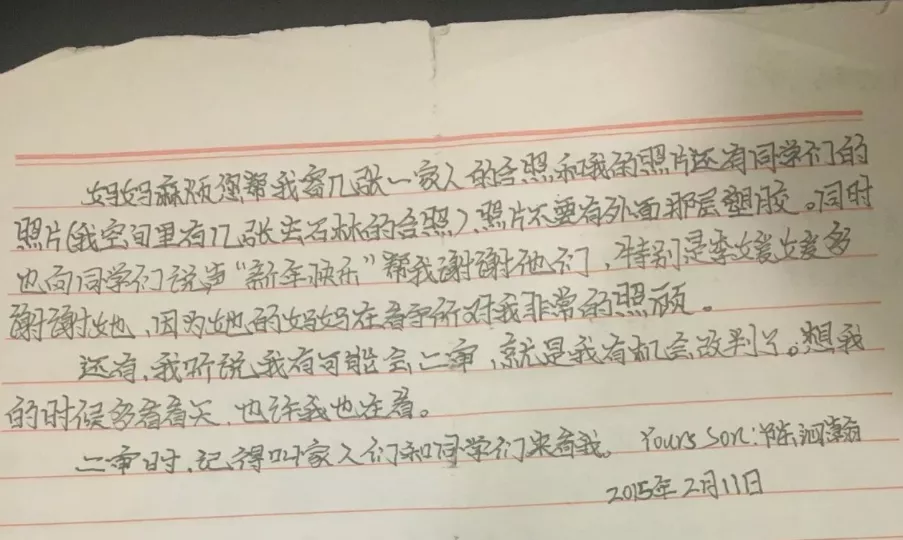 妈妈麻烦您帮我寄几张一家人的合照和我的照片还有同学们的
照片(我空间里有几张去石林的合照)、照片不要有外面那层塑胶。同时
也向同学们说声“新年快乐”帮我谢谢他们，特别是李媛媛多
谢谢她，因为她的妈妈在看守所对我非常的照顾。
还有、我听说我有可能会二审，就是我有机会改判了。想我
的时候多看看天，也许我也在看。
二审时、记得叫家人们和同学们来看我。 Yours Son:陈泗瀚
2015年2月11日